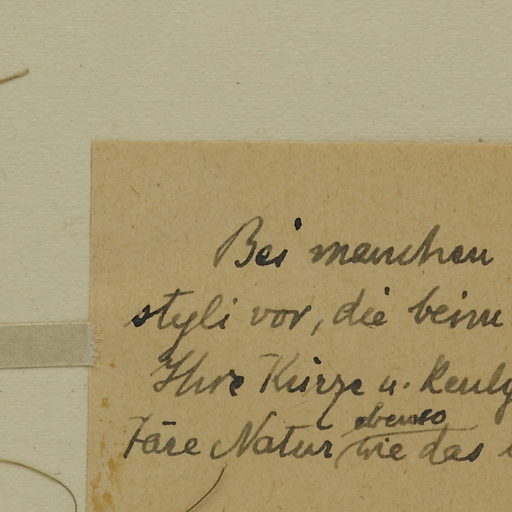 Bei manchen
styli vor, die beim
Ihre Kürze u. keulg
täre Natur ebenso wie das